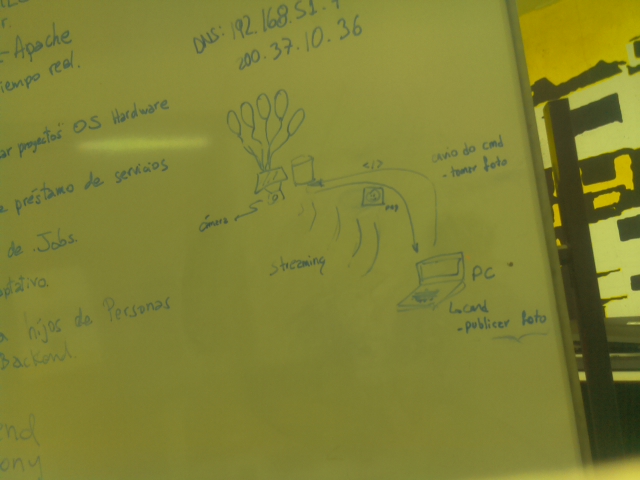 r.
- Apache
iempo real.
ar proyectos OS Hardware
e préstamo de servicios
de Jobs.
optativo.
a hijos de Personas
Backend.
end
ony
DNS: 192.168.51.
200.37.10.36
</>
envio do cmd
- tomar foto
cámara
streaming
PC
- publicer foto